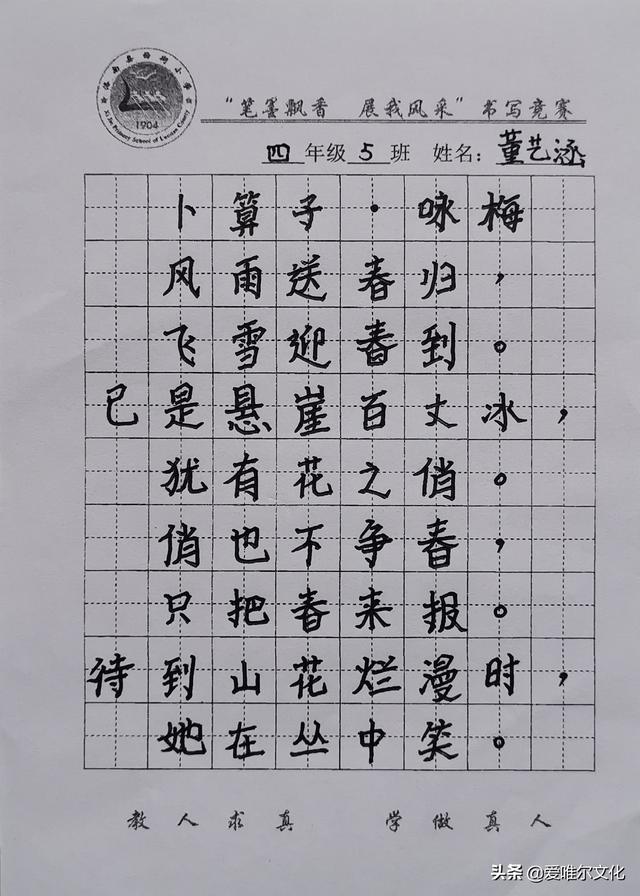 "笔墨飘香 展我风采"书写竞赛
1904
四年级5班 姓名：董艺涵
卜算子·咏梅
风雨送春归，
飞雪迎春到。
已是悬崖百丈冰，
犹有花之俏。
俏也不争春，
只把春来报。
待到山花烂漫时，
她在丛中笑。
教人求真 学做真人
头条 @爱唯尔文化